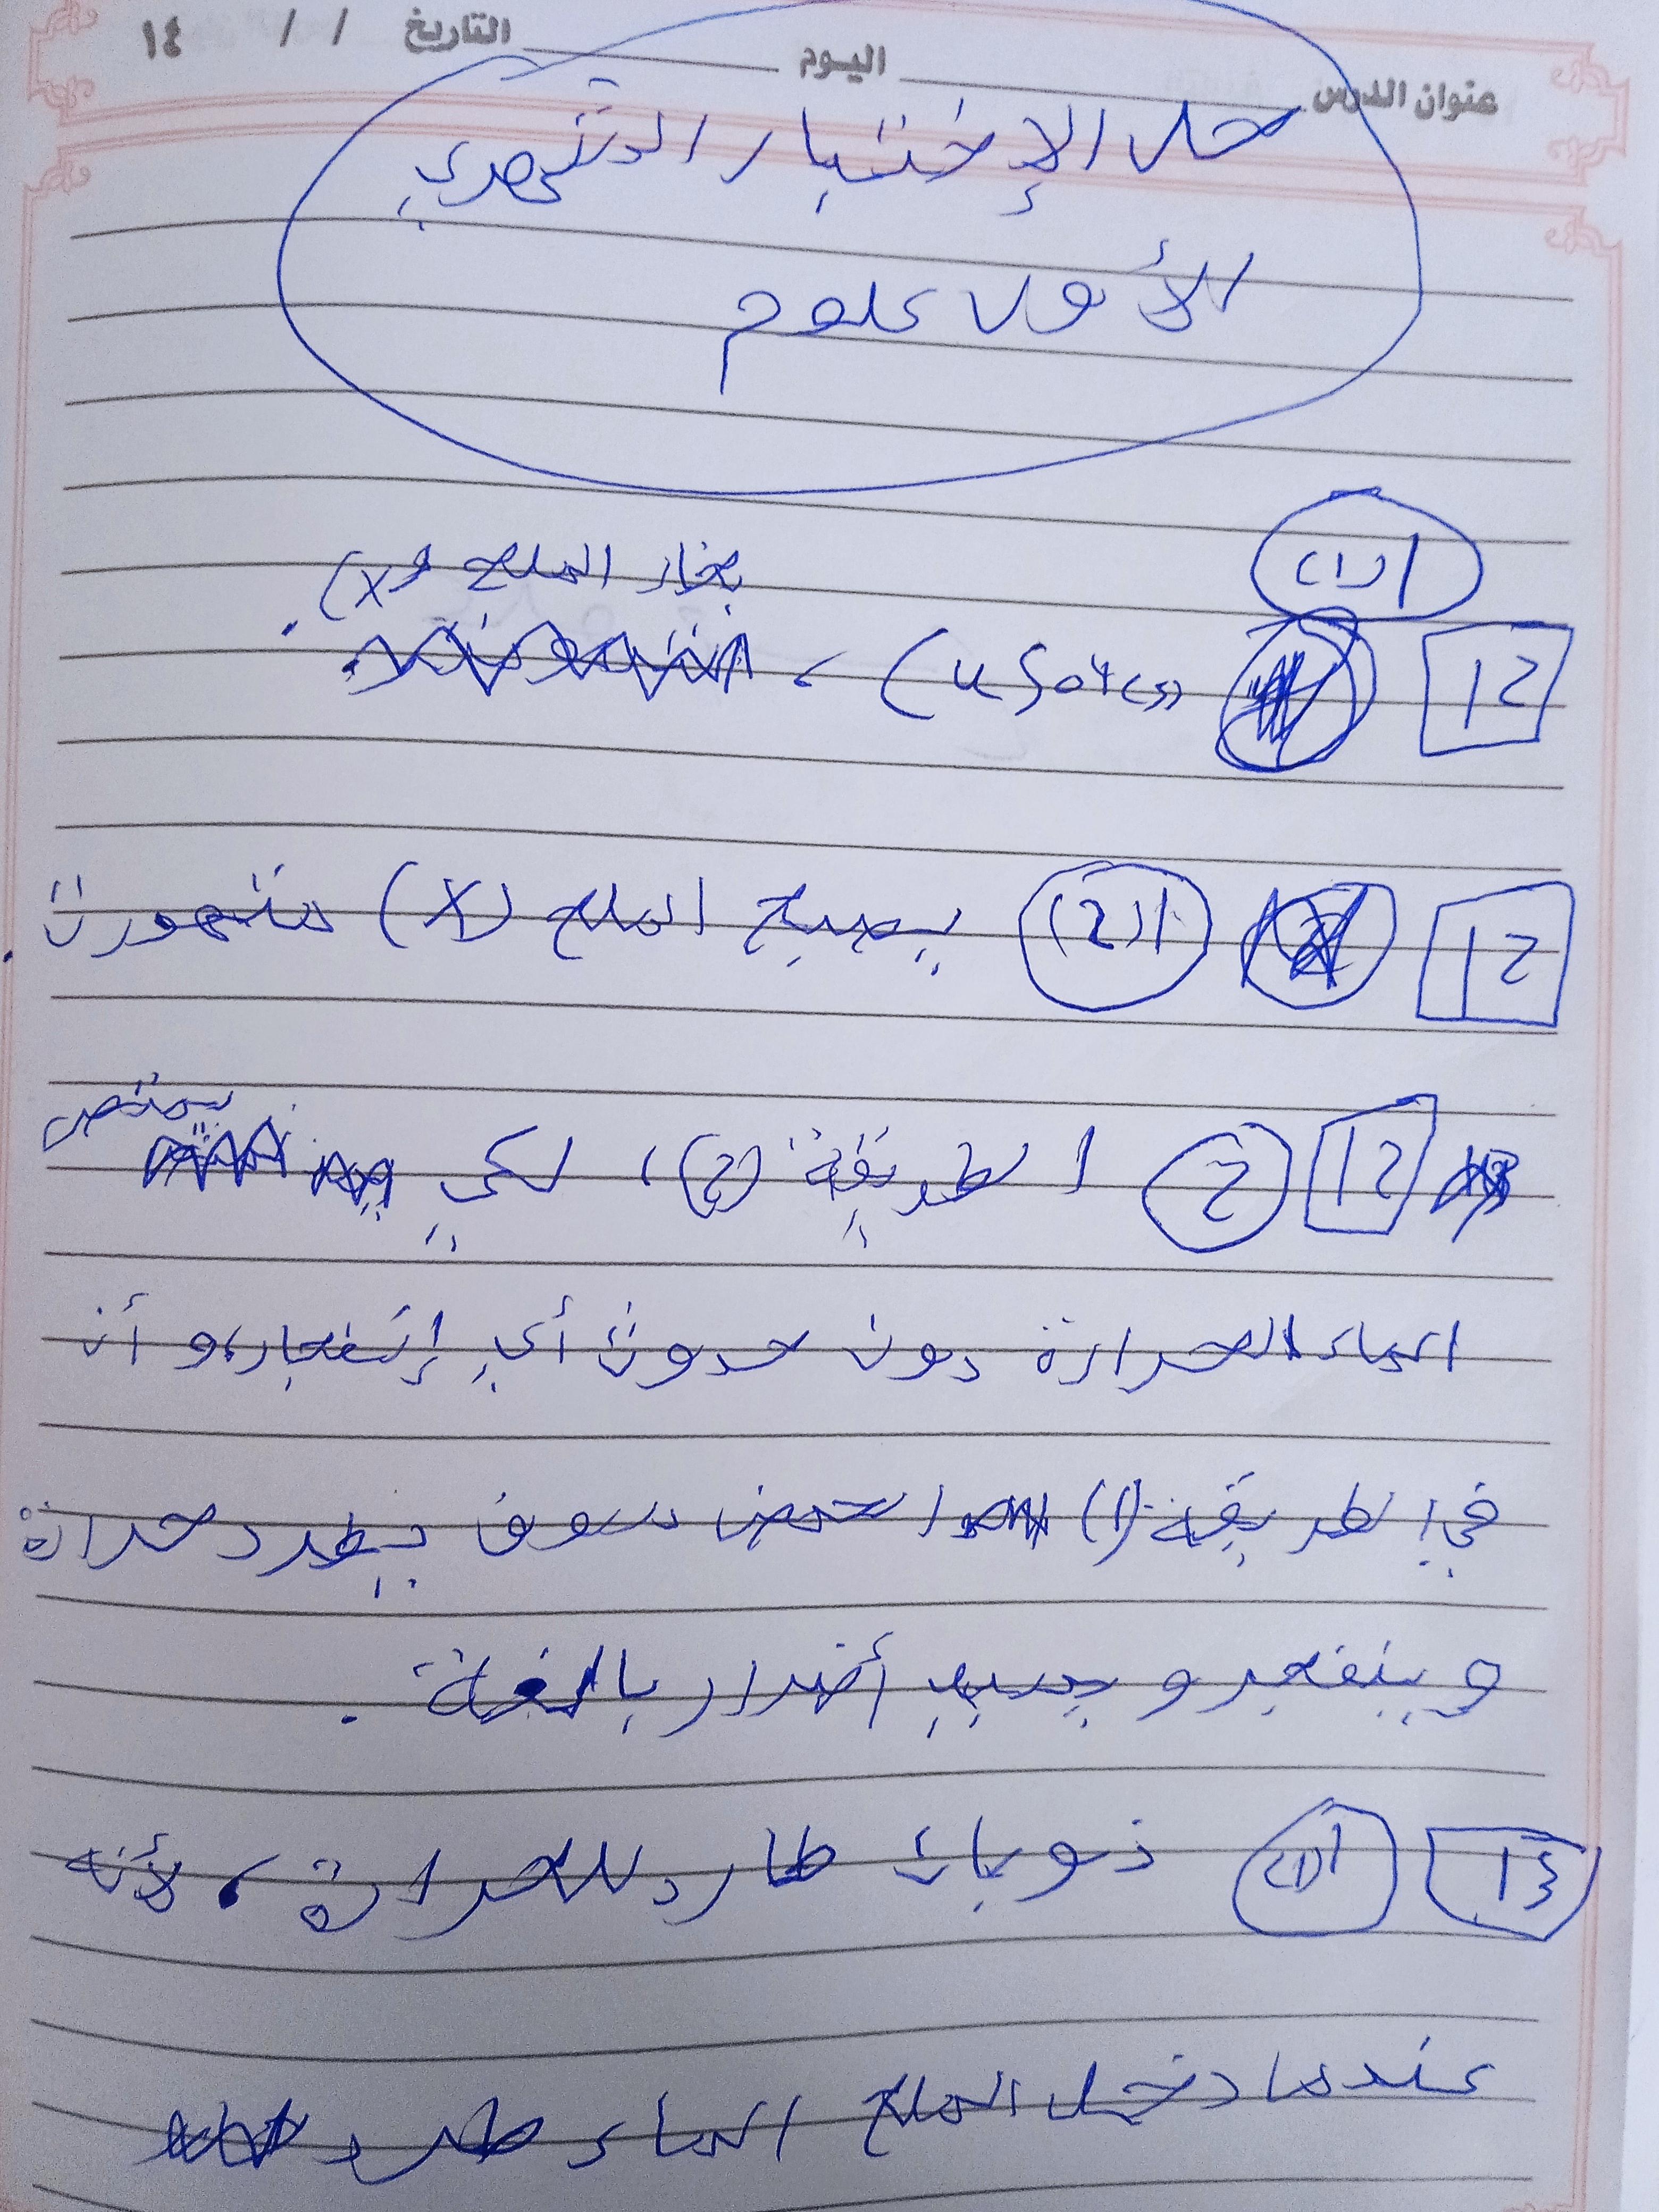 عنوان الدرس اليوم التاريخ / / ١٤
حل الإختبار الشهري
الأول علوم
(1)أ
بخار الملح (X).
12 (uSO4(s) ،
12 أ(2) يصبح الملح (X) منصهراً.
12 2 الطريقة (2)، لكي يمتص
الماء الحرارة دون حدوث أي إنفجار، و أن
في الطريقة (1) الحمض سوف يطرد حرارة
و ينفجر و يسبب أضرار بالغة.
13 أ(1) ذوبان طارد للحرارة، لأنه
عندما دخل الملح الماء طرد